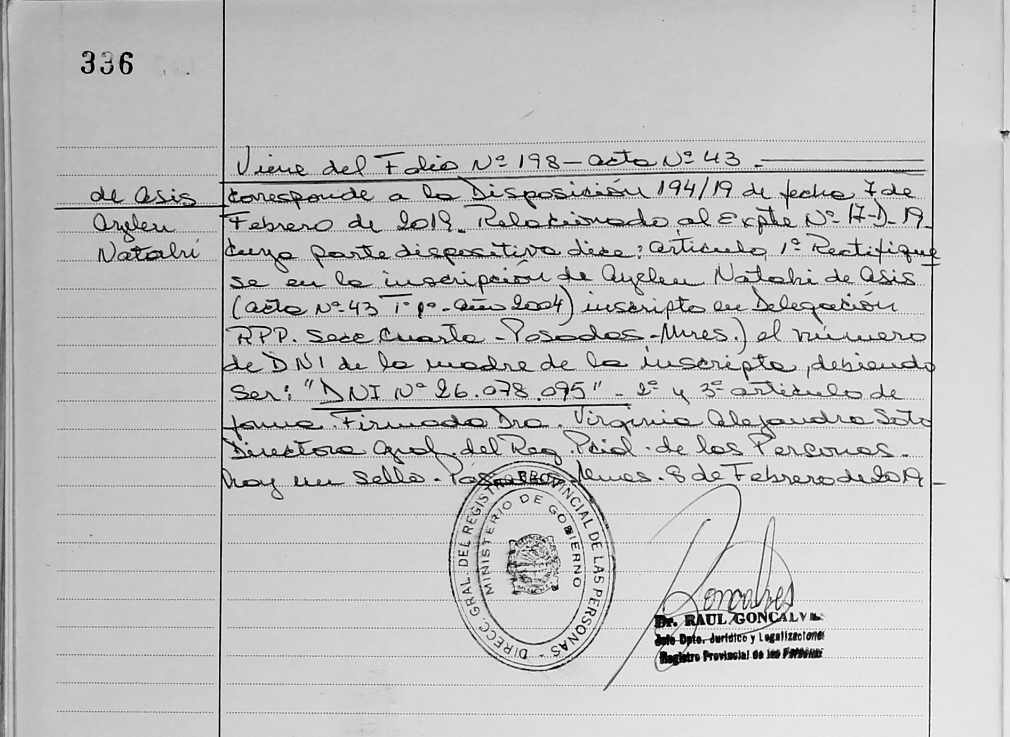 336
Viene del Folio Nº 198 - acta Nº 43 -
de Asis
Ayelen
Natahi
Corresponde a la Disposición 194/19 de fecha 7 de
Febrero de 2019. Relacionado al Expte Nº 17-D-19
cuya parte dispositiva dice: artículo 1º Rectifique
se en la inscripción de Ayelen Natahi de Asis
(acta Nº 43 Tº 1º - año 2004) inscripta en Delegación
RPP. Secc Cuarta - Posadas - Mnes.) el número
de DNI de la madre de la inscripta, debiendo
ser: "DNI Nº 26.078.095" - 2º y 3º artículo de
forma. Firmado Dra. Virginia Alejandra Soto
Directora Gral. del Reg. Pcial. de las Personas.
hay un sello. Posadas, Mnes. 8 de Febrero de 2019 -
DIRECC. GRAL. DEL REGISTRO PROVINCIAL DE LAS PERSONAS -
MINISTERIO DE GOBIERNO
Goncalves
Dr. RAUL GONCALVES
Jefe Dpto. Jurídico y Legalizaciones
Registro Provincial de las Personas